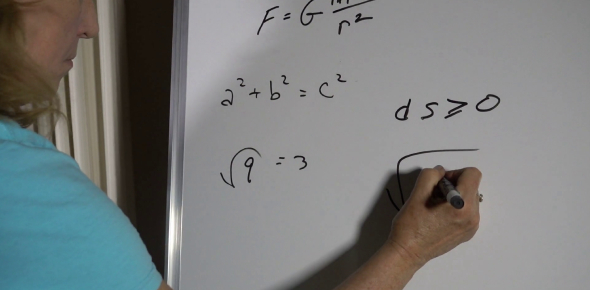 F = G / r²
a² + b² = c²
ds ≥ 0
√9 = 3